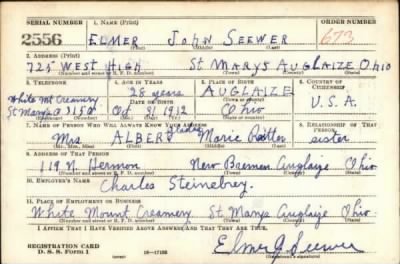 SERIAL NUMBER 1. NAME (Print) ORDER NUMBER
2556 ELMER JOHN SEEWER 673
(First) (Middle) (Last)
2. ADDRESS (Print)
725 WEST HIGH ST MARYS AUGLAIZE Ohio
(Number and street or R. F. D. number) (Town) (County) (State)
3. TELEPHONE 4. AGE IN YEARS 5. PLACE OF BIRTH 6. COUNTRY OF CITIZENSHIP
White Mt Creamery 28 years AUGLAIZE
DATE OF BIRTH (Town or county)
St Marys O Oct 8 1912 Ohio U.S.A.
(Mo.) (Day) (Yr.) (State or country)
7. NAME OF PERSON WHO WILL ALWAYS KNOW YOUR ADDRESS 8. RELATIONSHIP OF THAT PERSON
Mrs ALBERT Marie sister
(Mr., Mrs., Miss) (First) (Middle) (Last)
9. ADDRESS OF THAT PERSON
119 N Hermon New Bremen Auglaize Ohio
(Number and street or R. F. D. number) (Town) (County) (State)
10. EMPLOYER'S NAME
Charles Steinebrey
11. PLACE OF EMPLOYMENT OR BUSINESS
White Mount Creamery St Marys Auglaize Ohio
(Number and street or R. F. D. number) (Town) (County) (State)
I AFFIRM THAT I HAVE VERIFIED ABOVE ANSWERS AND THAT THEY ARE TRUE.
REGISTRATION CARD
D. S. S. Form 1 16-17105 Elmer J Seewer
(over) (Registrant's signature)